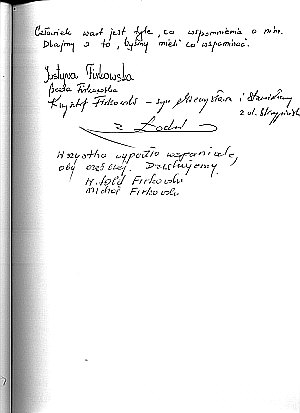 Człowiek wart jest tyle, co wspomnienia o nim.
Dbajmy o to, byśmy mieli co wspominać.
Justyna Firkowska
Beata Firkowska
Krzysztof Firkowski - syn Mieczysława i Stanisławy
z ul. Strzyińskiej
z Łodzi
Wszystko wypadło wspaniale,
oby częściej. Dziękujemy.
Witold Firkowski
Michał Firkowski